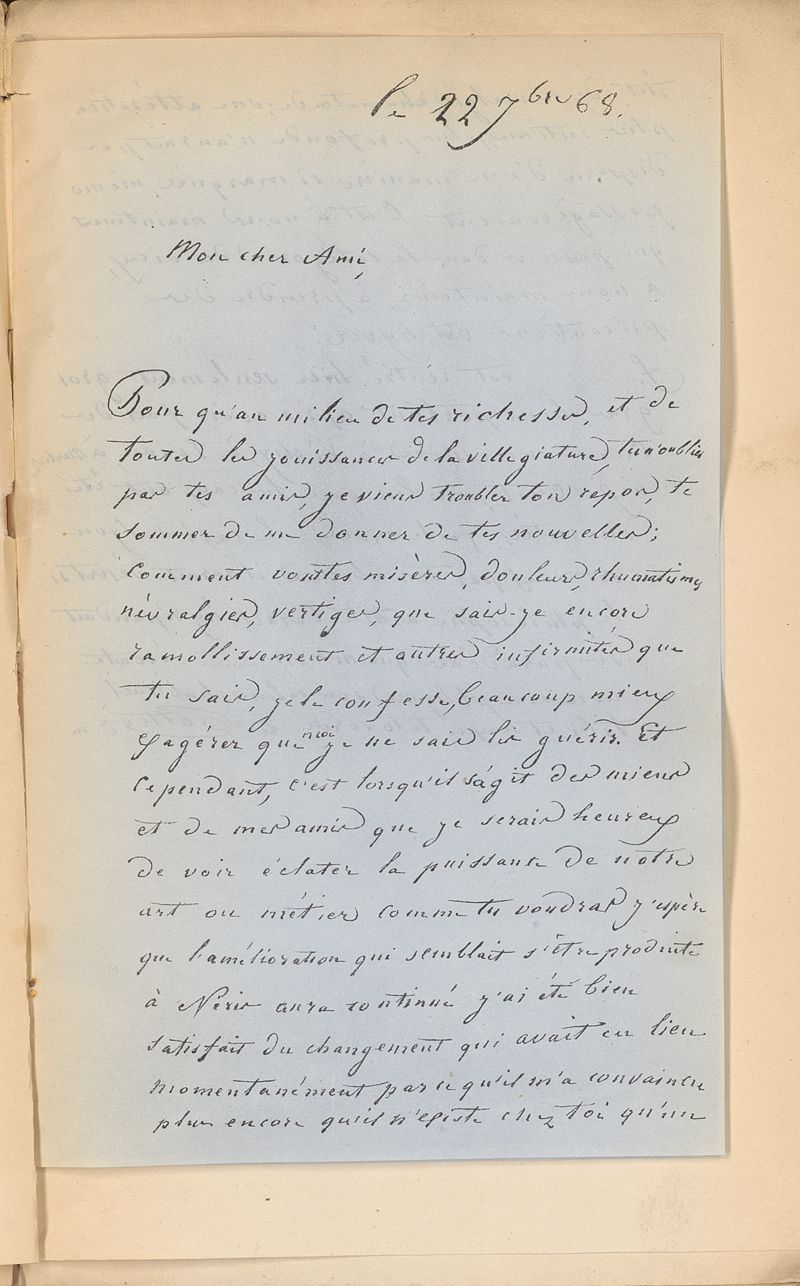 le 22 7bre 68.
Mon cher Ami,
Pour qu'au milieu de tes richesses, et de
toutes les jouissances de la villegiature, tu n'oublies
pas tes amis, je viens troubler ton repos, te
sommer de me donner de tes nouvelles;
comment vont tes misères, douleurs, rhumatismes
névralgies, vertiges, que sais-je encore
ramollissement et autres infirmités que
tu sais, je le confesse, beaucoup mieux
exagérer que moi je ne sais les guérir. Et
cependant, c'est lorsqu'il s'agit des miens
et de mes amis que je serais heureux
de voir éclater la puissance de notre
art ou métier comme tu voudras j'espère
que l'amélioration qui semblait s'être produite
à Néris aura continué j'ai été bien
satisfait du changement qui avait eu lieu
momentanément parce qu'il m'a convaincu
plus encore qu'il n'existe chez toi qu'un